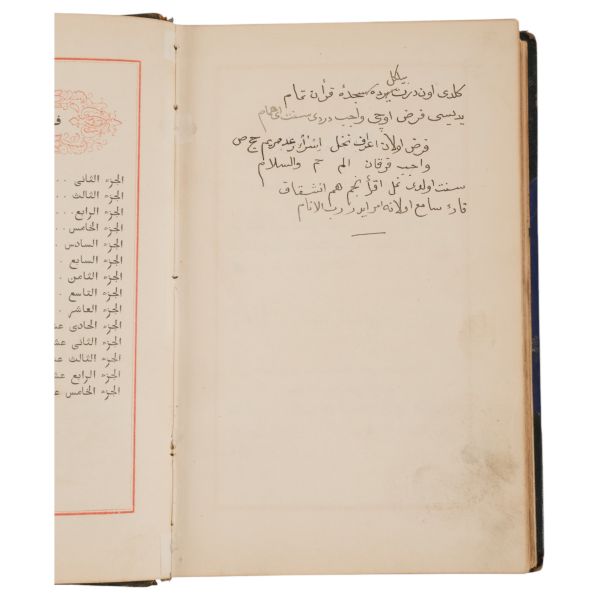 بيلكل
كلدى اون درت يرده سجدهٔ قرآن تمام
يديسى فرض اوچى واجب دردى سنت اى همام
فرض اولان اعراف نحل اسرا رعد مريم حج ص
واجب فرقان الم حم والسلام
سنت اولدى نمل اقرأ نجم هم انشقاق
قارء سامع اولانه امر ايدر رب الانام
الجزء الثانى
الجزء الثالث
الجزء الرابع
الجزء الخامس
الجزء السادس
الجزء السابع
الجزء الثامن
الجزء التاسع
الجزء العاشر
الجزء الحادى عش
الجزء الثانى عش
الجزء الثالث عش
الجزء الرابع عش
الجزء الخامس ع